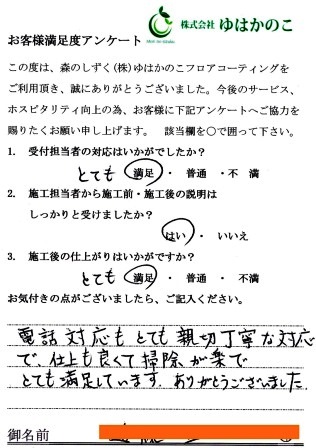 株式会社 ゆはかのこ
お客様満足度アンケート
この度は、森のしずく(株)ゆはかのこフロアコーティングを
ご利用頂き、誠にありがとうございました。今後のサービス、
ホスピタリティ向上の為、お客様に下記アンケートへご協力を
賜りたくお願い申し上げます。 該当欄を〇で囲って下さい。
1. 受付担当者の対応はいかがでしたか?
とても 満足 ・ 普通 ・不 満
2. 施工担当者から施工前・施工後の説明は
しっかりと受けましたか?
はい ・ いいえ
3. 施工後の仕上がりはいかがですか?
とても 満足 ・ 普通 ・ 不満
お気付きの点がございましたら、ご記入ください。
電話対応もとても親切丁寧な対応
で、仕上も良くて掃除が楽で
とても満足しています。ありがとうございました。
御名前